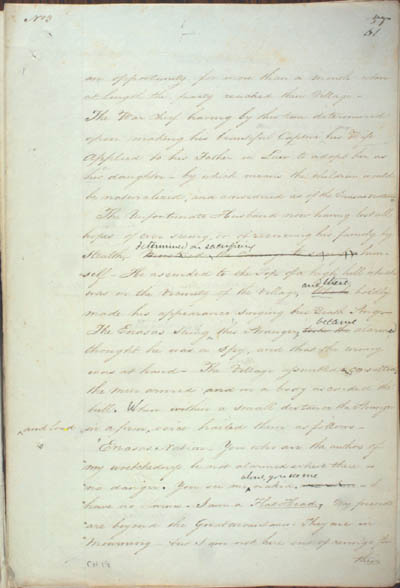 No 3
51
an opportunity for more than a month when
at length the party reached their Village –
The War Chief having by this time determined
upon making his beautiful Captive his Wife
Applied to his Father in Law to adopt her as
his daughter – by which means the children would
be naturalized, and considered as of the
The Unfortunate Husband now having lost all
hopes of ever seeing, or of recovering his family by
Stealth, determined on sacrificing him
self – He ascended to the Top of a high hill which
was in the vicinity of the Village, and there boldly
made his appearance Singing his Death Song
The Eneasas seeing a Stranger, became alarmed
thought he was a Spy, and that the enemy
was at hand – The Village
the men armed and in a body ascended the
hill. When within a small distance the Stranger
and loud
in a firm voice hailed them as follows –
"Eneasas Nation. You who are the author of
"my wretchedness be not alarmed where there is
"no danger. You see me alone
"have no arms – I am a Flat Head, My friends
"are beyond the Great mountains. They are in
"Mourning – but I am not here out of revenge, tho
they